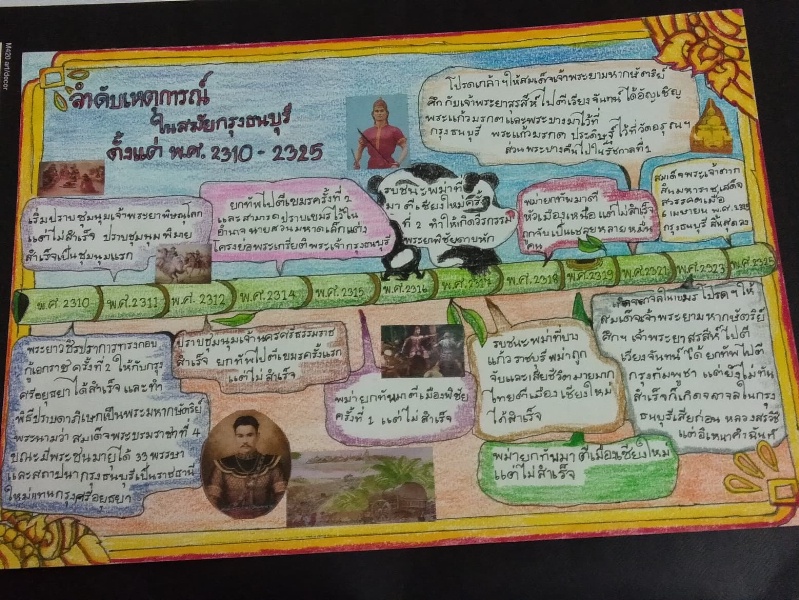 M420 artdecor
ลำดับเหตุการณ์
ในสมัยกรุงธนบุรี
ตั้งแต่ พ.ศ. 2310 - 2325
โปรดเกล้าฯให้สมเด็จเจ้าพระยามหากษัตริย์
ศึกกับเจ้าพระยาสุรสีห์ไปตีเวียงจันทน์ ได้อัญเชิญ
พระแก้วมรกตและพระบางมาไว้ที่
กรุงธนบุรี พระแก้วมรกต ประดิษฐ์ไว้ที่วัดอรุณฯ
ส่วนพระบางคืนไปในรัชกาลที่ 2
เริ่มปราบชุมนุมเจ้าพระยาพิษณุโลก
แต่ไม่สำเร็จ ปราบชุมนุมพิมาย
สำเร็จเป็นชุมนุมแรก
ยกทัพไปตีเขมรครั้งที่ 2
และสามารถปราบเขมรไว้ใน
อำนาจ นายสวนมหาดเล็กแต่ง
โคลงยอพระเกียรติพระเจ้ากรุงธนบุรี
รบชนะพม่าที่
มาตีเชียงใหม่ครั้ง
ที่ 2 ทำให้เกิดวีรกรรม
พระยาพิชัยดาบหัก
พม่ายกทัพมาตี
หัวเมืองเหนือ แต่ไม่สำเร็จ
ถูกจับเป็นเชลยหลายหมื่น
คน
สมเด็จพระเจ้าตาก
สินมหาราชเสด็จ
สวรรคตเมื่อ
6 เมษายน พ.ศ. 2325
กรุงธนบุรี สิ้นสุดลง
พ.ศ. 2310 พ.ศ. 2311 พ.ศ. 2312 พ.ศ. 2314 พ.ศ. 2315 พ.ศ. 2316 พ.ศ. 2317 พ.ศ. 2318 พ.ศ. 2319 พ.ศ. 2321 พ.ศ. 2323 พ.ศ. 2325
พระยาวชิรปราการทรงกอบ
กู้เอกราช ครั้งที่ 2 ให้กับกรุง
ศรีอยุธยา ได้สำเร็จ และทำ
พิธีปราบดาภิเษกเป็นพระมหากษัตริย์
พระนามว่า สมเด็จพระบรมราชาที่ 4
ขณะมีพระชนมายุได้ 33 พรรษา
และสถาปนากรุงธนบุรีเป็นราชธานี
ใหม่แทนกรุงศรีอยุธยา
ปราบชุมนุมเจ้านครศรีธรรมราช
สำเร็จ ยกทัพไปตีเขมรครั้งแรก
แต่ไม่สำเร็จ
พม่ายกทัพมาตีเมืองพิชัย
ครั้งที่ 1 แต่ไม่สำเร็จ
รบชนะพม่าที่บาง
แก้ว ราชบุรี พม่าถูก
จับและเสียชีวิตมายมาก
ไทยตีเมืองเชียงใหม่
ได้สำเร็จ
พม่ายกทัพมาตีเมืองเชียงใหม่
แต่ไม่สำเร็จ
เกิดจลาจลในเขมร โปรดฯให้
สมเด็จเจ้าพระยามหากษัตริย์
ศึกฯ เจ้าพระยาสุรสีห์ไปตี
เวียงจันทน์ได้ ยกทัพไปตี
กรุงกัมพูชา แต่ยังไม่ทัน
สำเร็จก็เกิดจลาจลในกรุง
ธนบุรีเสียก่อน หลวงสรวิชิต
แต่อิเหนาคำฉันท์